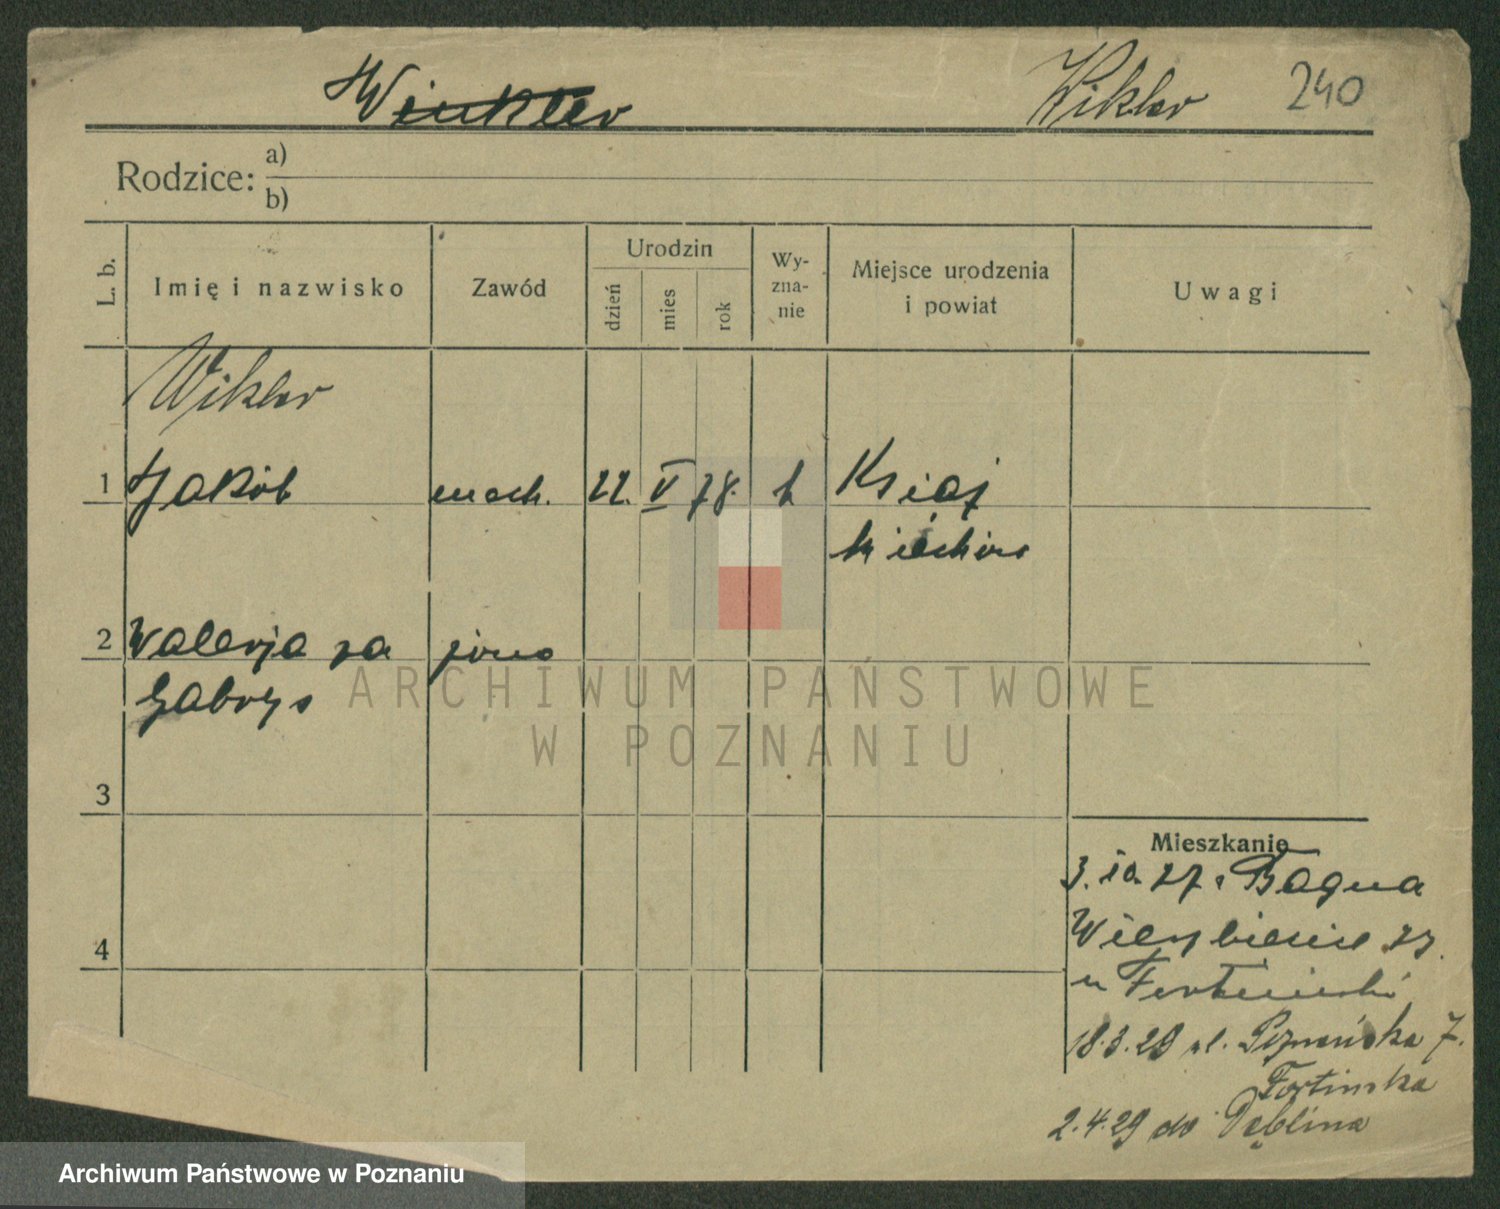 Winkler Wikler 240
Rodzice: a)
b)
L. b. Imię i nazwisko Zawód Urodzin dzień mies rok Wy-zna-nie Miejsce urodzenia i powiat Uwagi
Wikler
1 Jakób mech. 22. V 78. Książ
2 Walerja za żona
Gabryś
ARCHIWUM PAŃSTWOWE
W POZNANIU
3
Mieszkanie
3. 10. 27. Bagna
4 27.
18.3.28 ul. Poznańska 7.
Fortinska
2.4.29 do Dęblina
Archiwum Państwowe w Poznaniu